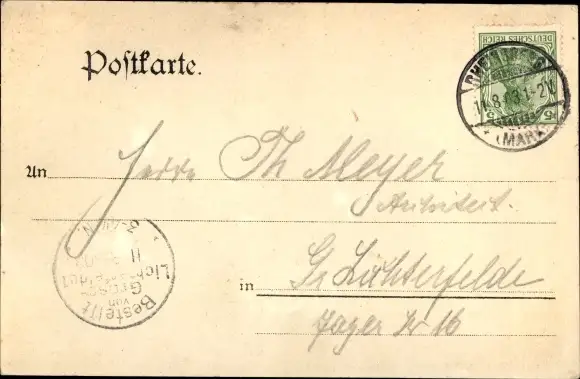 Postkarte.
DEUTSCHES REICH
5
(MARK)
11.8. 1-2N.
An Herrn Th Meyer
Architect.
in Gr Lichterfelde
Jäger Str 16
Bestellt
von
Gross-
Lichterfelde 1
11.8.
3-4 N.